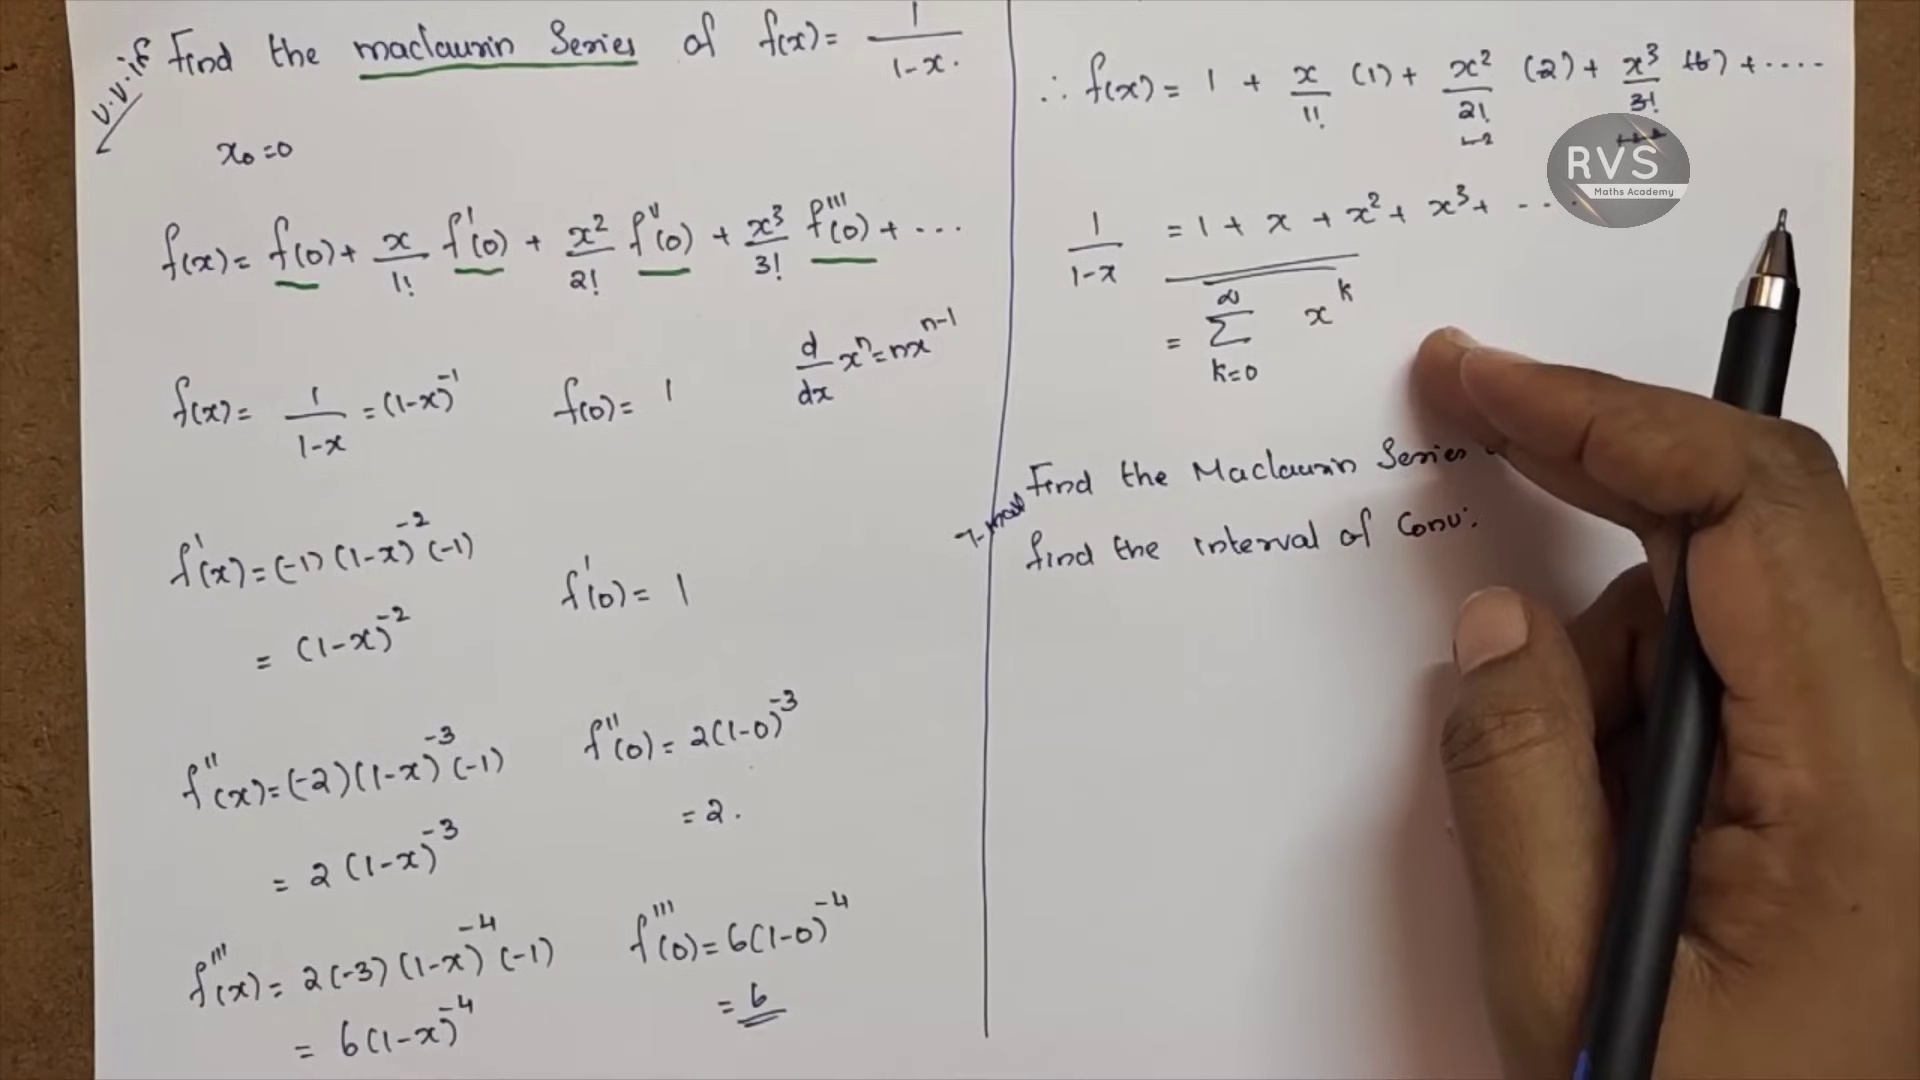 v.v.if Find the maclaurin Series of f(x) = 1/1-x.
x₀ = 0
f(x) = f(0) + x/1! f'(0) + x²/2! f''(0) + x³/3! f'''(0) + ...
d/dx xⁿ = nxⁿ⁻¹
f(x) = 1/1-x = (1-x)⁻¹ f(0) = 1
f'(x) = (-1) (1-x)⁻² (-1)
= (1-x)⁻² f'(0) = 1
f''(x) = (-2) (1-x)⁻³ (-1) f''(0) = 2(1-0)⁻³
= 2 (1-x)⁻³ = 2.
f'''(x) = 2(-3) (1-x)⁻⁴ (-1) f'''(0) = 6(1-0)⁻⁴
= 6(1-x)⁻⁴ = 6
∴ f(x) = 1 + x/1! (1) + x²/2! (2) + x³/3! (6) + ....
RVS
Maths Academy
1/1-x = 1 + x + x² + x³ + ....
= ∞ Σ k=0 xᵏ
Find the Maclaurin Series
find the interval of Conv: